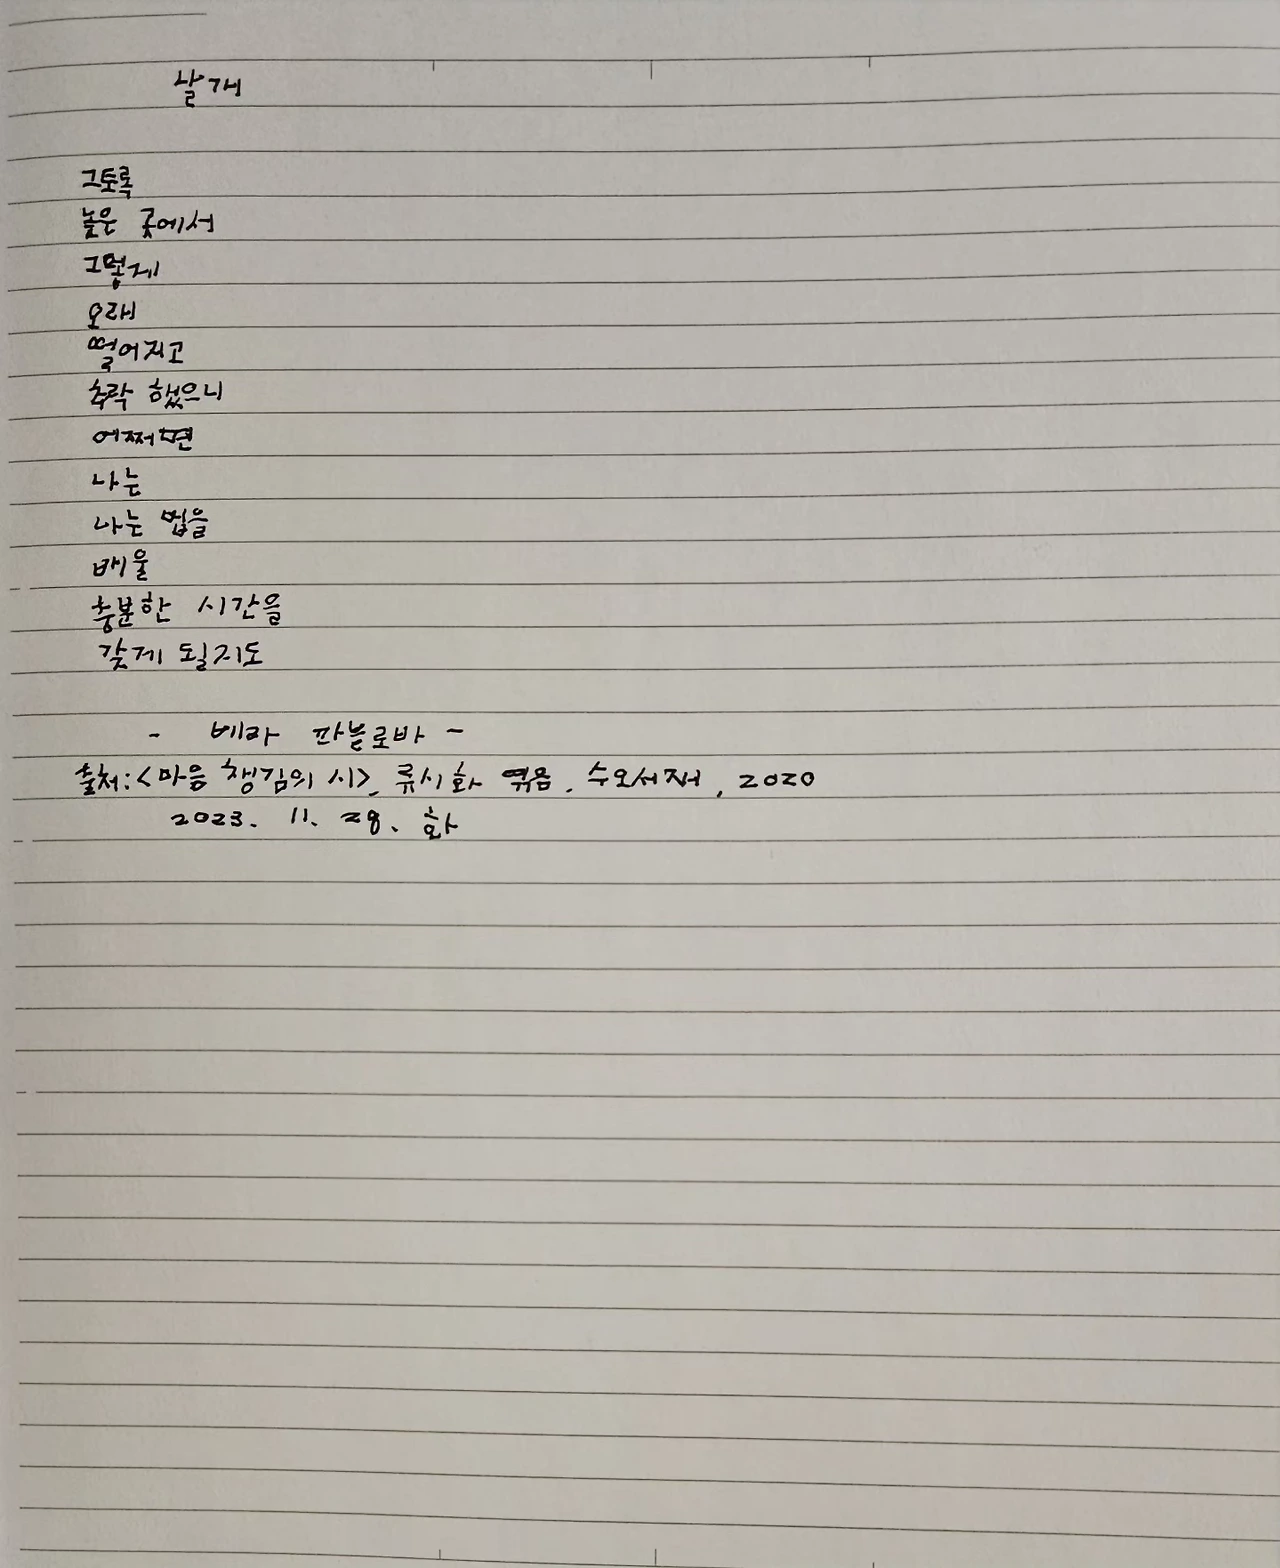 날개
그토록
높은 곳에서
그렇게
오래
떨어지고
추락 했으니
어쩌면
나는
나는 법을
배울
충분한 시간을
갖게 될지도
- 베라 파블로바 -
출처:<마음 챙김의 시>, 류시화 엮음, 수오서재, 2020
2023. 11. 28. 화